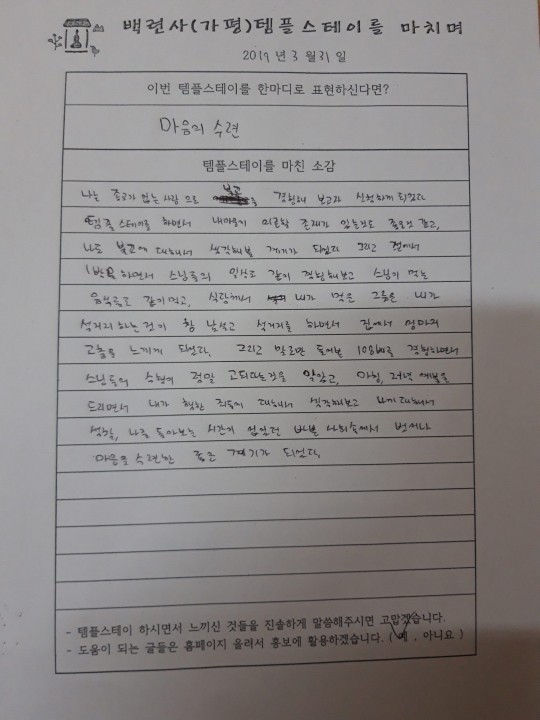 백련사(가평)템플스테이를 마치며
2019 년 3 월 31 일
이번 템플스테이를 한마디로 표현하신다면?
마음의 수련
템플스테이를 마친 소감
나는 종교가 없는 사람 으로 불교를 경험해 보고자 신청하게 되었다
템플스테이를 하면서 내마음에 의 존재가 있는것도 좋을것 같고,
나도 불교에 대해서 생각해볼 계기가 되었다 그리고 절에서
1박2일 하면서 스님들의 일상도 같이 경험해보고 스님이 먹는
음식들도 같이 먹고, 식당에서 내가 먹은 그릇은 내가
설거지 하는 것이 참 낯설고 설거지를 하면서 집에서 엄마의
고충을 느끼게 되었다. 그리고 말로만 들어본 108배를 경험하면서
스님들의 수행이 정말 고되다는것을 알았고, 아침, 저녁 예불을
드리면서 내가 행한 죄들에 대해서 생각해보고 나에 대해서
성찰, 나를 돌아보는 시간이 없었던 바쁜 사회속에서 벗어나
마음을 수련한 좋은 계기가 되었다.
- 템플스테이 하시면서 느끼신 것들을 진솔하게 말씀해주시면 고맙겠습니다.
- 도움이 되는 글들은 홈페이지 올려서 홍보에 활용하겠습니다. ( 예 , 아니요 )